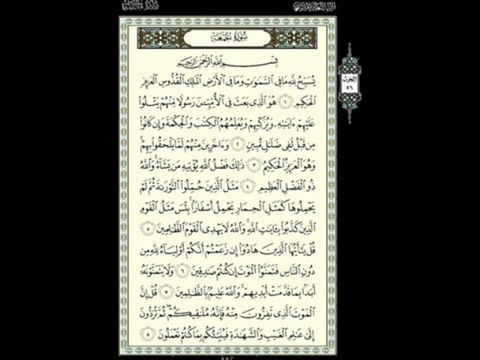 سُورَةُ الجُمُعَةِ
بِسْمِ اللَّهِ الرَّحْمَٰنِ الرَّحِيمِ
يُسَبِّحُ لِلَّهِ مَا فِي السَّمَٰوَٰتِ وَمَا فِي الْأَرْضِ الْمَلِكِ الْقُدُّوسِ الْعَزِيزِ
الْحَكِيمِ ١ هُوَ الَّذِي بَعَثَ فِي الْأُمِّيِّينَ رَسُولًا مِّنْهُمْ يَتْلُوا
عَلَيْهِمْ ءَايَٰتِهِ وَيُزَكِّيهِمْ وَيُعَلِّمُهُمُ الْكِتَٰبَ وَالْحِكْمَةَ وَإِن كَانُوا
مِن قَبْلُ لَفِي ضَلَٰلٍ مُّبِينٍ ٢ وَءَاخَرِينَ مِنْهُمْ لَمَّا يَلْحَقُوا بِهِمْ
وَهُوَ الْعَزِيزُ الْحَكِيمُ ٣ ذَٰلِكَ فَضْلُ اللَّهِ يُؤْتِيهِ مَن يَشَاءُ وَاللَّهُ
ذُو الْفَضْلِ الْعَظِيمِ ٤ مَثَلُ الَّذِينَ حُمِّلُوا التَّوْرَىٰةَ ثُمَّ لَمْ
يَحْمِلُوهَا كَمَثَلِ الْحِمَارِ يَحْمِلُ أَسْفَارًا بِئْسَ مَثَلُ الْقَوْمِ
الَّذِينَ كَذَّبُوا بِـَٔايَٰتِ اللَّهِ وَاللَّهُ لَا يَهْدِي الْقَوْمَ الظَّٰلِمِينَ ٥
قُلْ يَٰأَيُّهَا الَّذِينَ هَادُوا إِن زَعَمْتُمْ أَنَّكُمْ أَوْلِيَاءُ لِلَّهِ مِن
دُونِ النَّاسِ فَتَمَنَّوُا الْمَوْتَ إِن كُنتُمْ صَٰدِقِينَ ٦ وَلَا يَتَمَنَّوْنَهُ
أَبَدًا بِمَا قَدَّمَتْ أَيْدِيهِمْ وَاللَّهُ عَلِيمٌ بِالظَّٰلِمِينَ ٧ قُلْ إِنَّ
الْمَوْتَ الَّذِي تَفِرُّونَ مِنْهُ فَإِنَّهُ مُلَٰقِيكُمْ ثُمَّ تُرَدُّونَ
إِلَىٰ عَٰلِمِ الْغَيْبِ وَالشَّهَٰدَةِ فَيُنَبِّئُكُم بِمَا كُنتُمْ تَعْمَلُونَ ٨
الحزب
٥٦